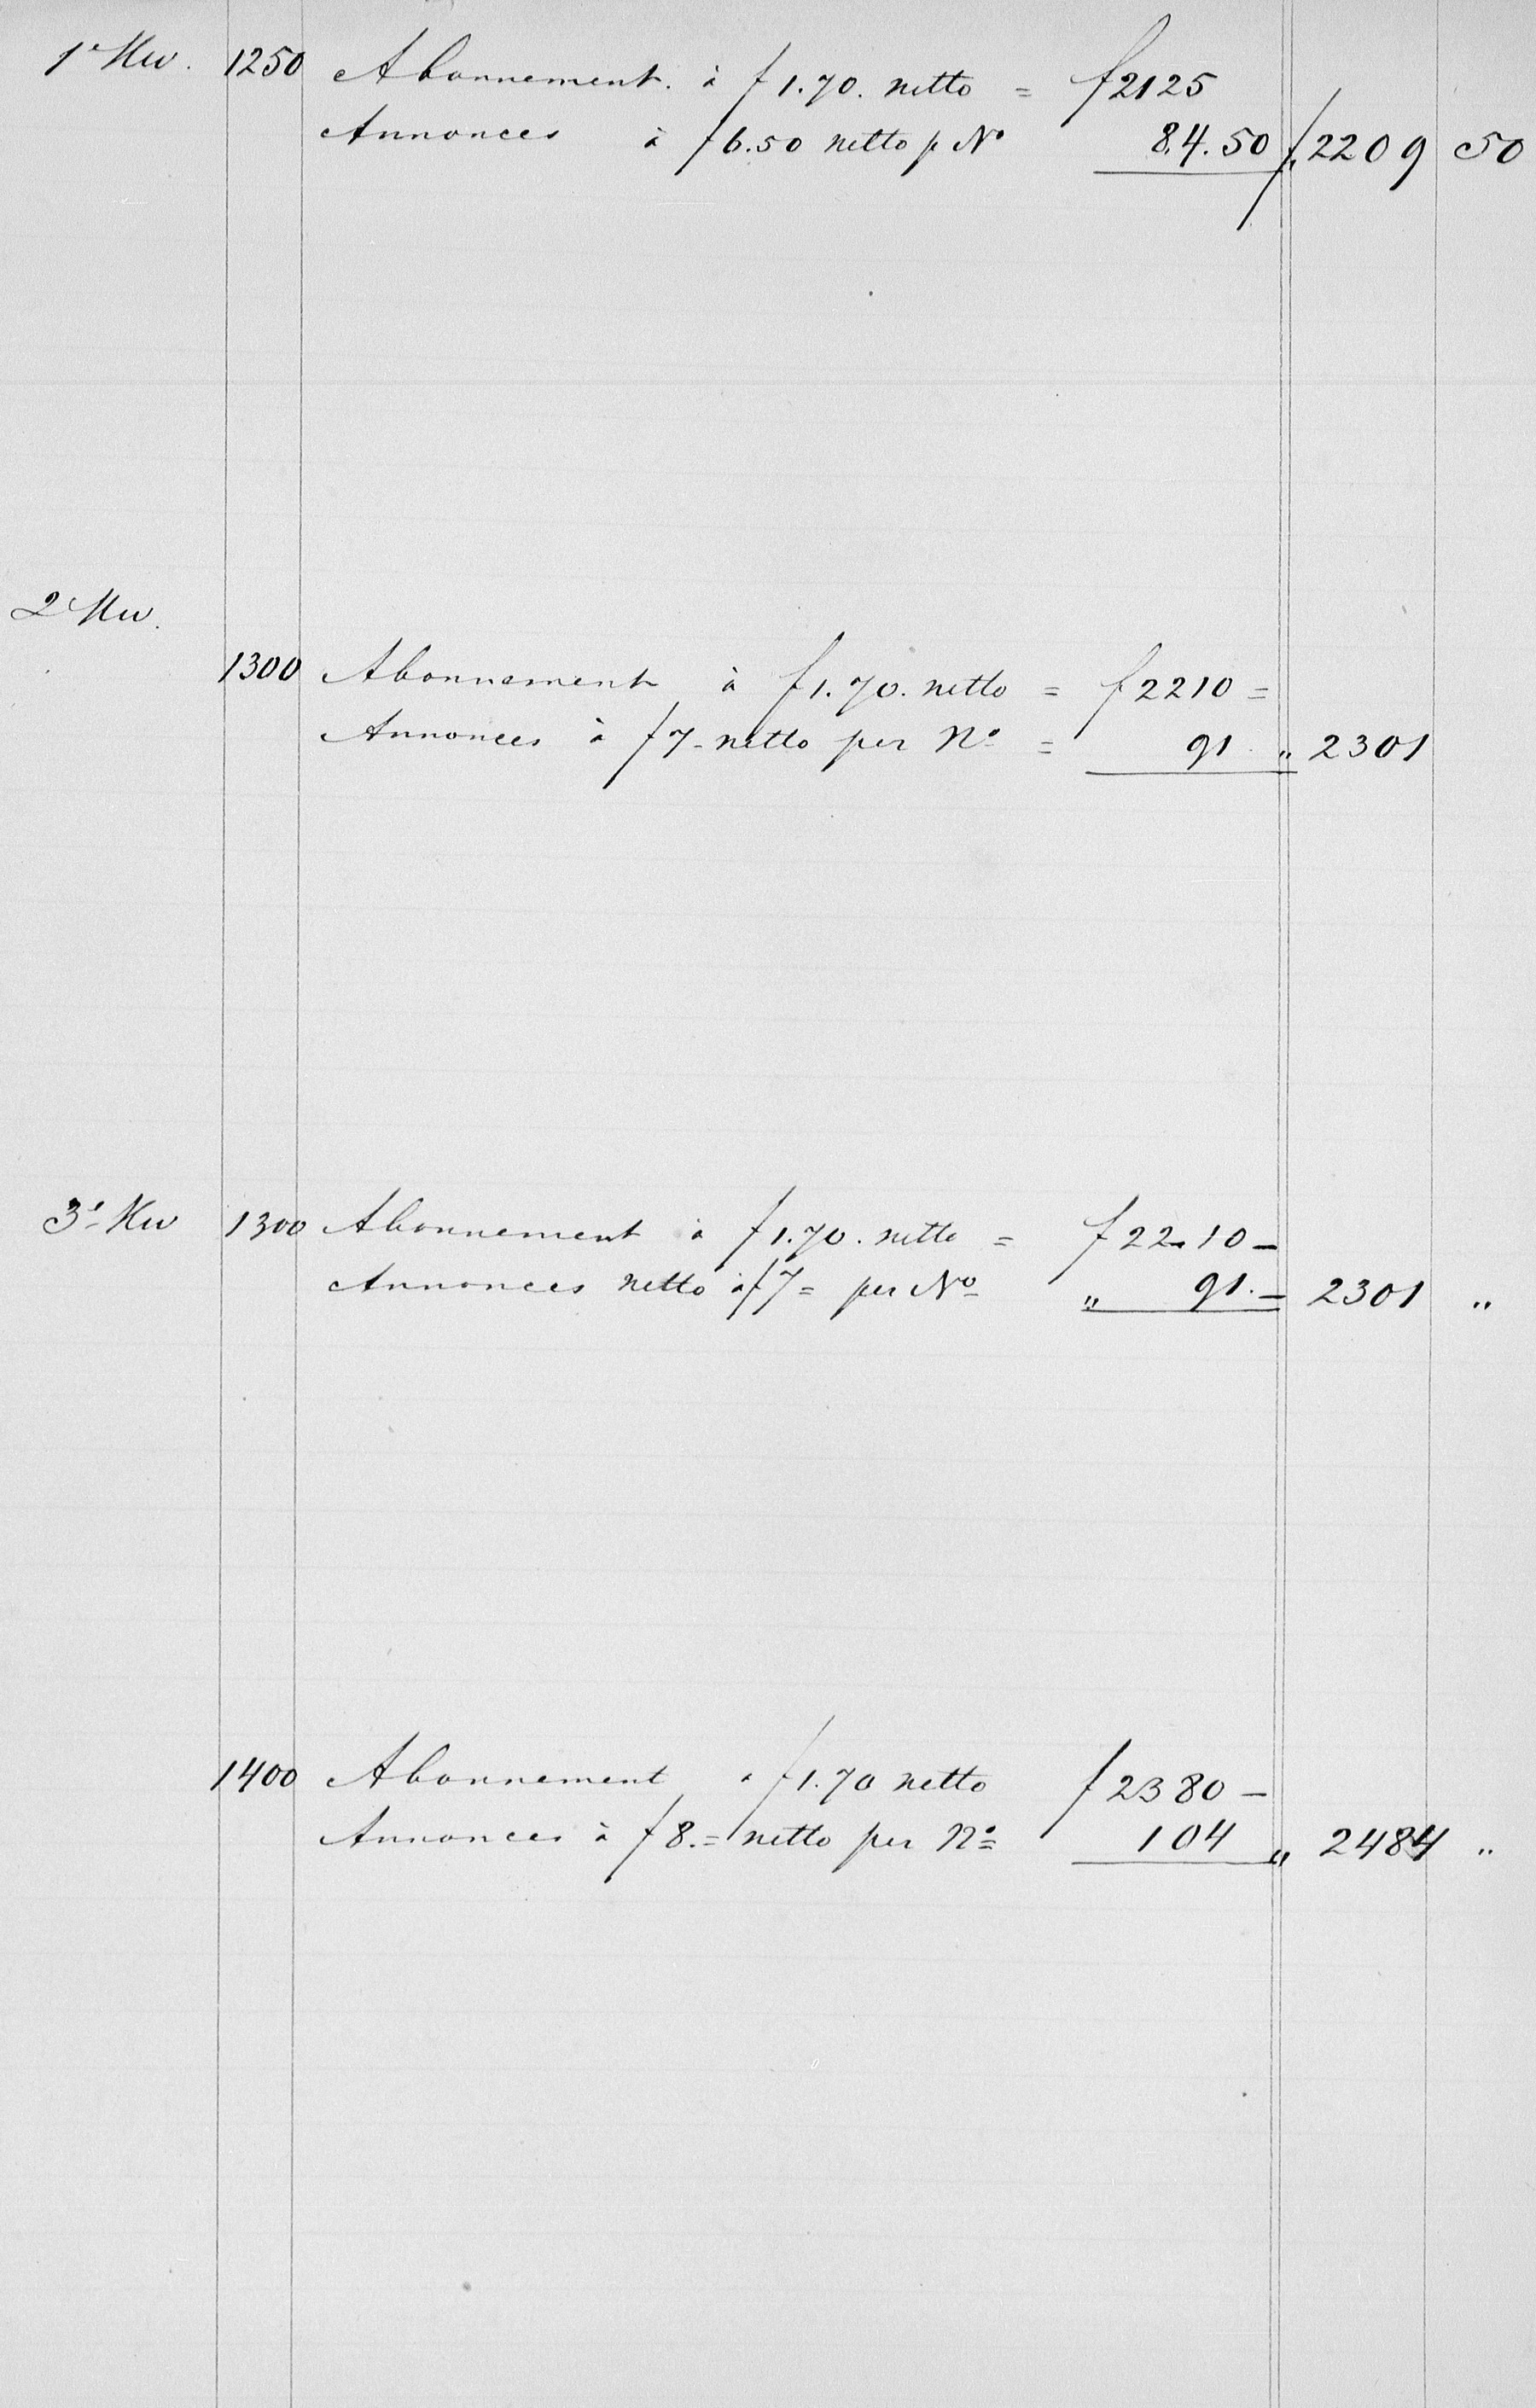 1e Kw. 1250 Abonnement. à f 1.70. netto = f 2125
Annonces à f 6.50 netto p No 84.50 f 2209 50
2 Kw.
1300 Abonnement à f 1.70. netto = f 2210 =
Annonces à f 7 - netto per No = 91 " 2301
3e Kw 1300 Abonnement à f 1.70. netto = f 2210 -
Annonces netto à f 7 = per No " 91. - 2301 "
1400 Abonnement à f 1.70 netto f 2380 -
Annonces à f 8. = netto per No 104 " 2484 "